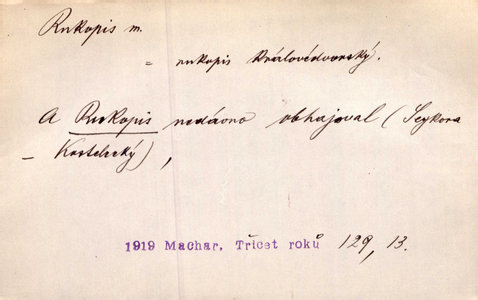 Rukopis m.
= rukopis Královédvorský.
A Rukopis nedávno obhajoval (Seykora
– Kostelecký),
1919 Machar, Třicet roků 129, 13.